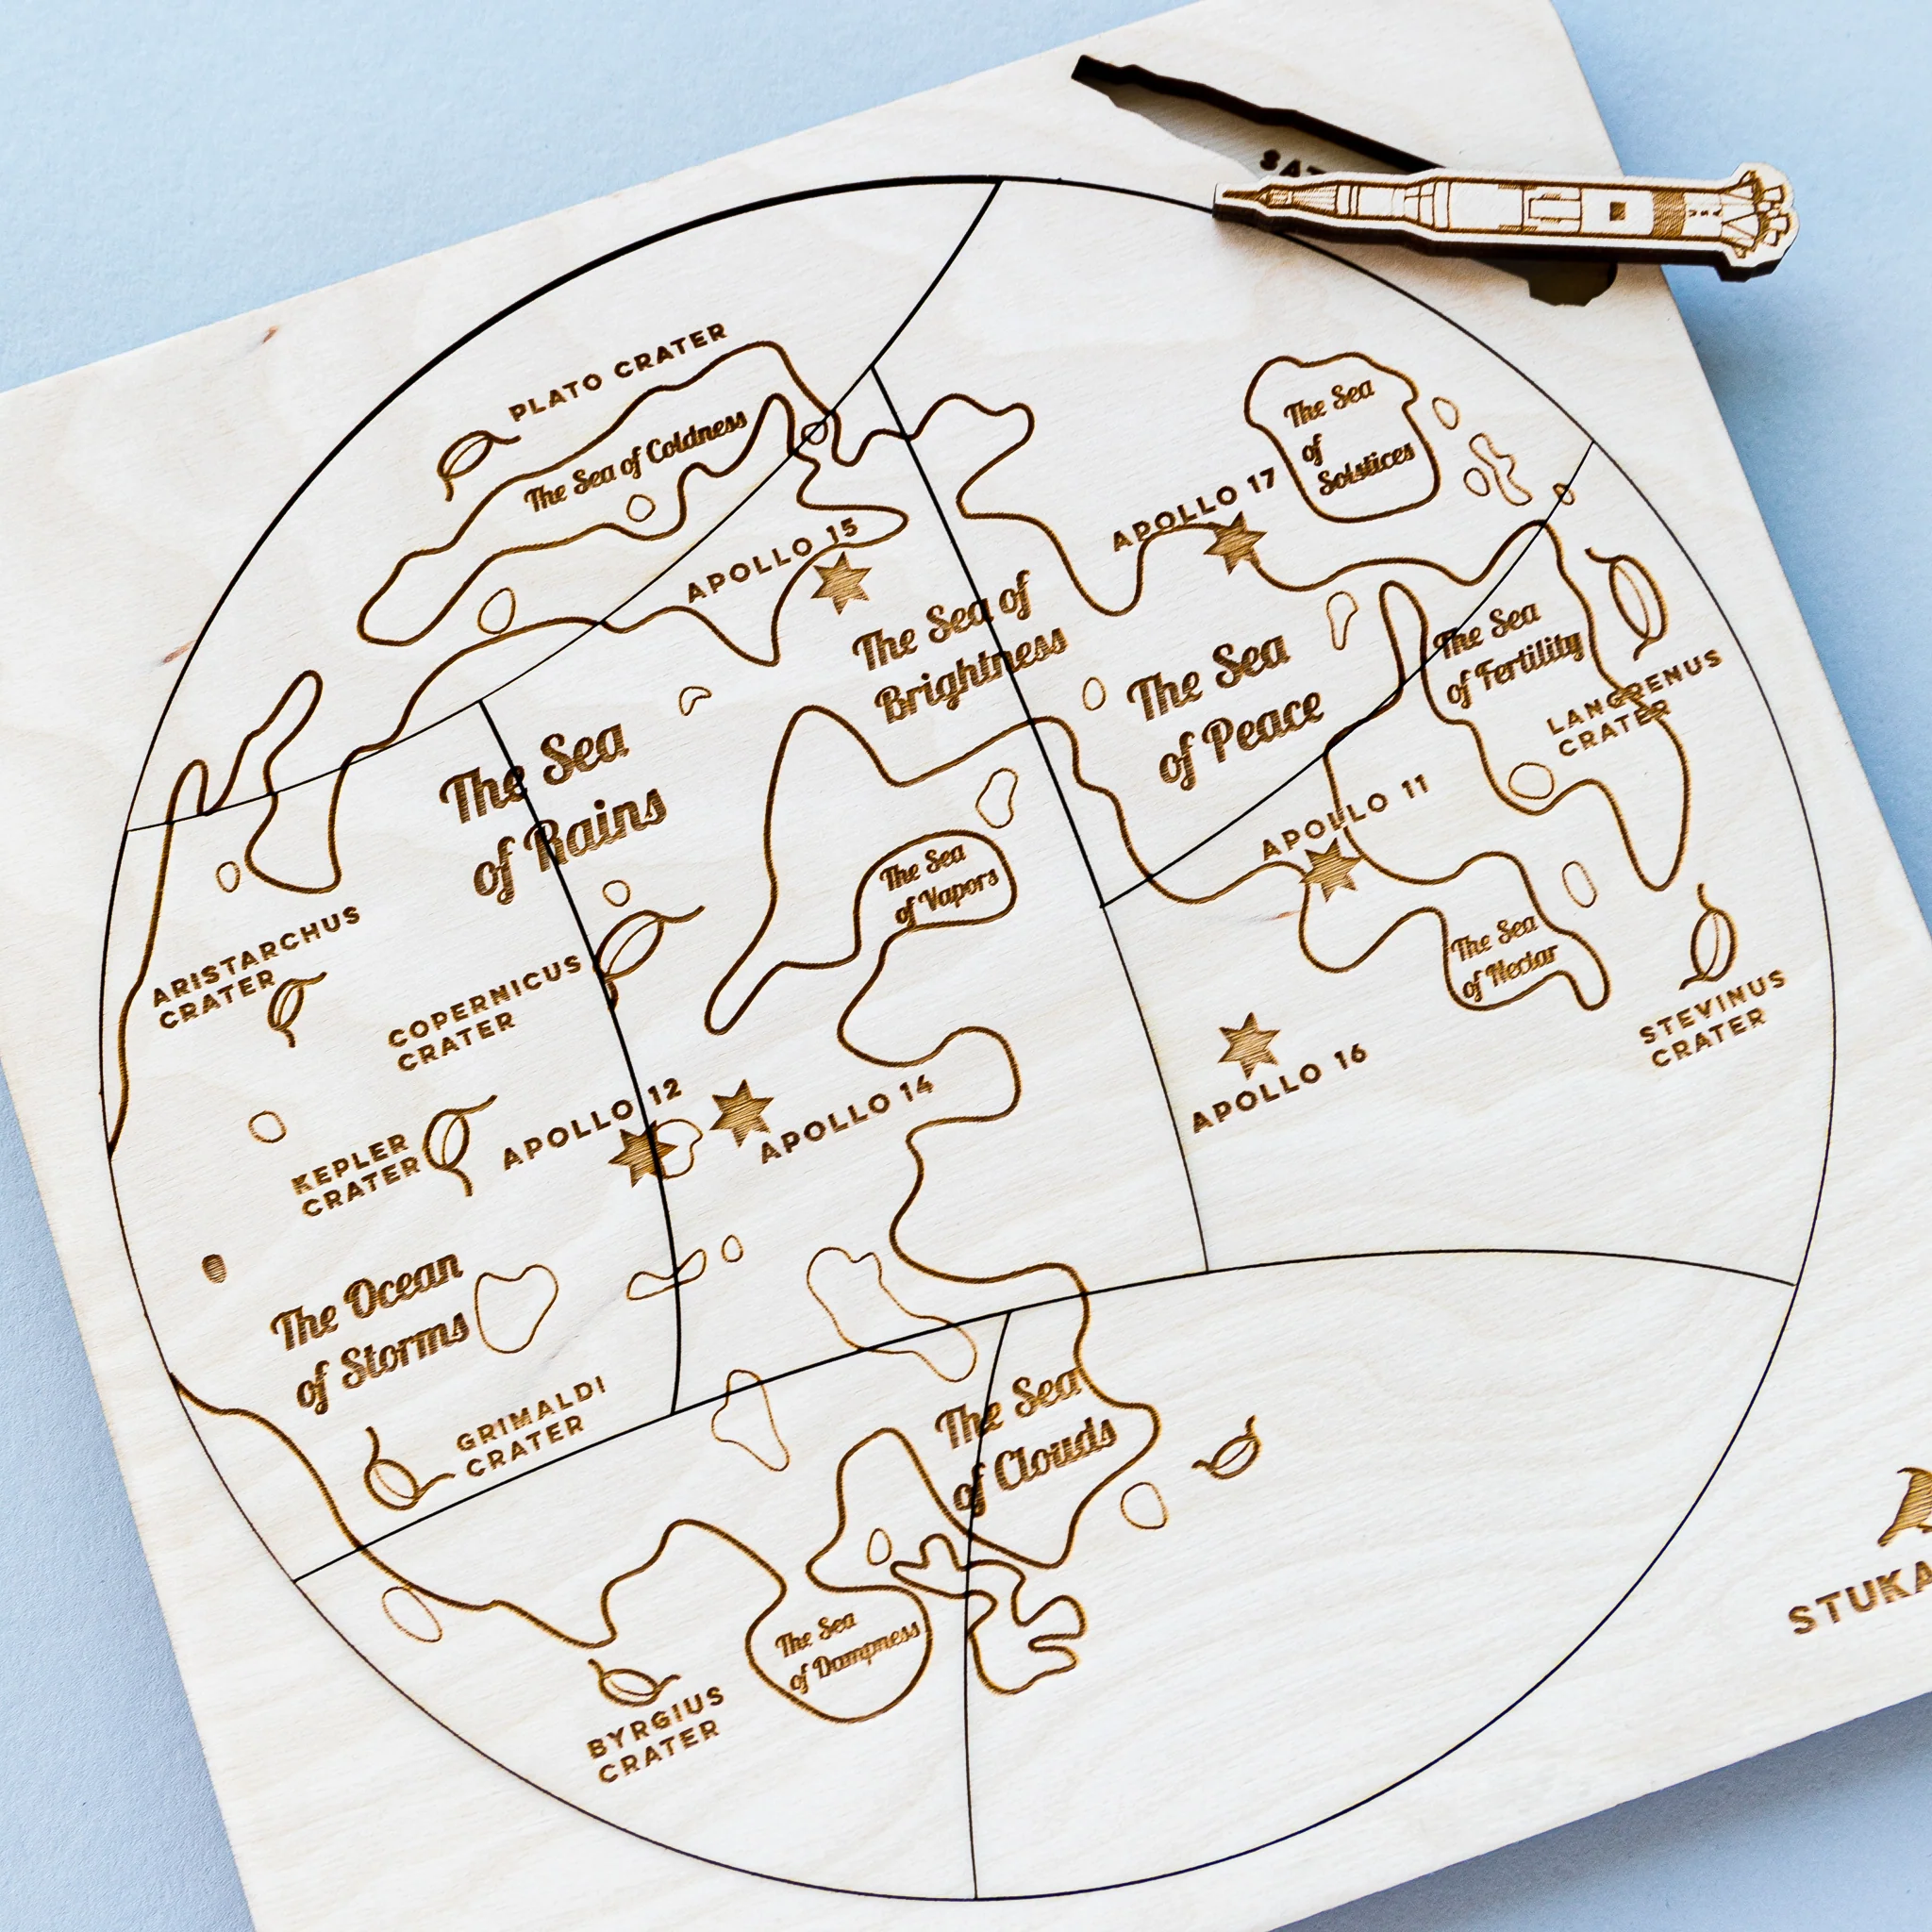 SAT
USA
PLATO CRATER
The Sea of Coldness
The Sea
of
Solstices
APOLLO 17
APOLLO 15
The Sea of
Brightness
The Sea
of Peace
The Sea
of Fertility
LANGRENUS
CRATER
The Sea
of Rains
APOLLO 11
The Sea
of Vapors
The Sea
of Nectar
ARISTARCHUS
CRATER
COPERNICUS
CRATER
STEVINUS
CRATER
APOLLO 16
KEPLER
CRATER
APOLLO 12
APOLLO 14
The Ocean
of Storms
GRIMALDI
CRATER
The Sea
of Clouds
The Sea
of Dampness
BYRGIUS
CRATER
STUKA